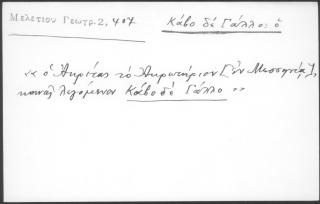 Μελετίου Γεωγρ. 2, 407
Κάβο δέ Γάλλο: ὁ
« ὁ Ἀκρίτας τὸ Ἀκρωτήριον [ἐν Μεσσηνίᾳ],
κοινῶς λεγόμενον Κάβο δέ Γάλλο »